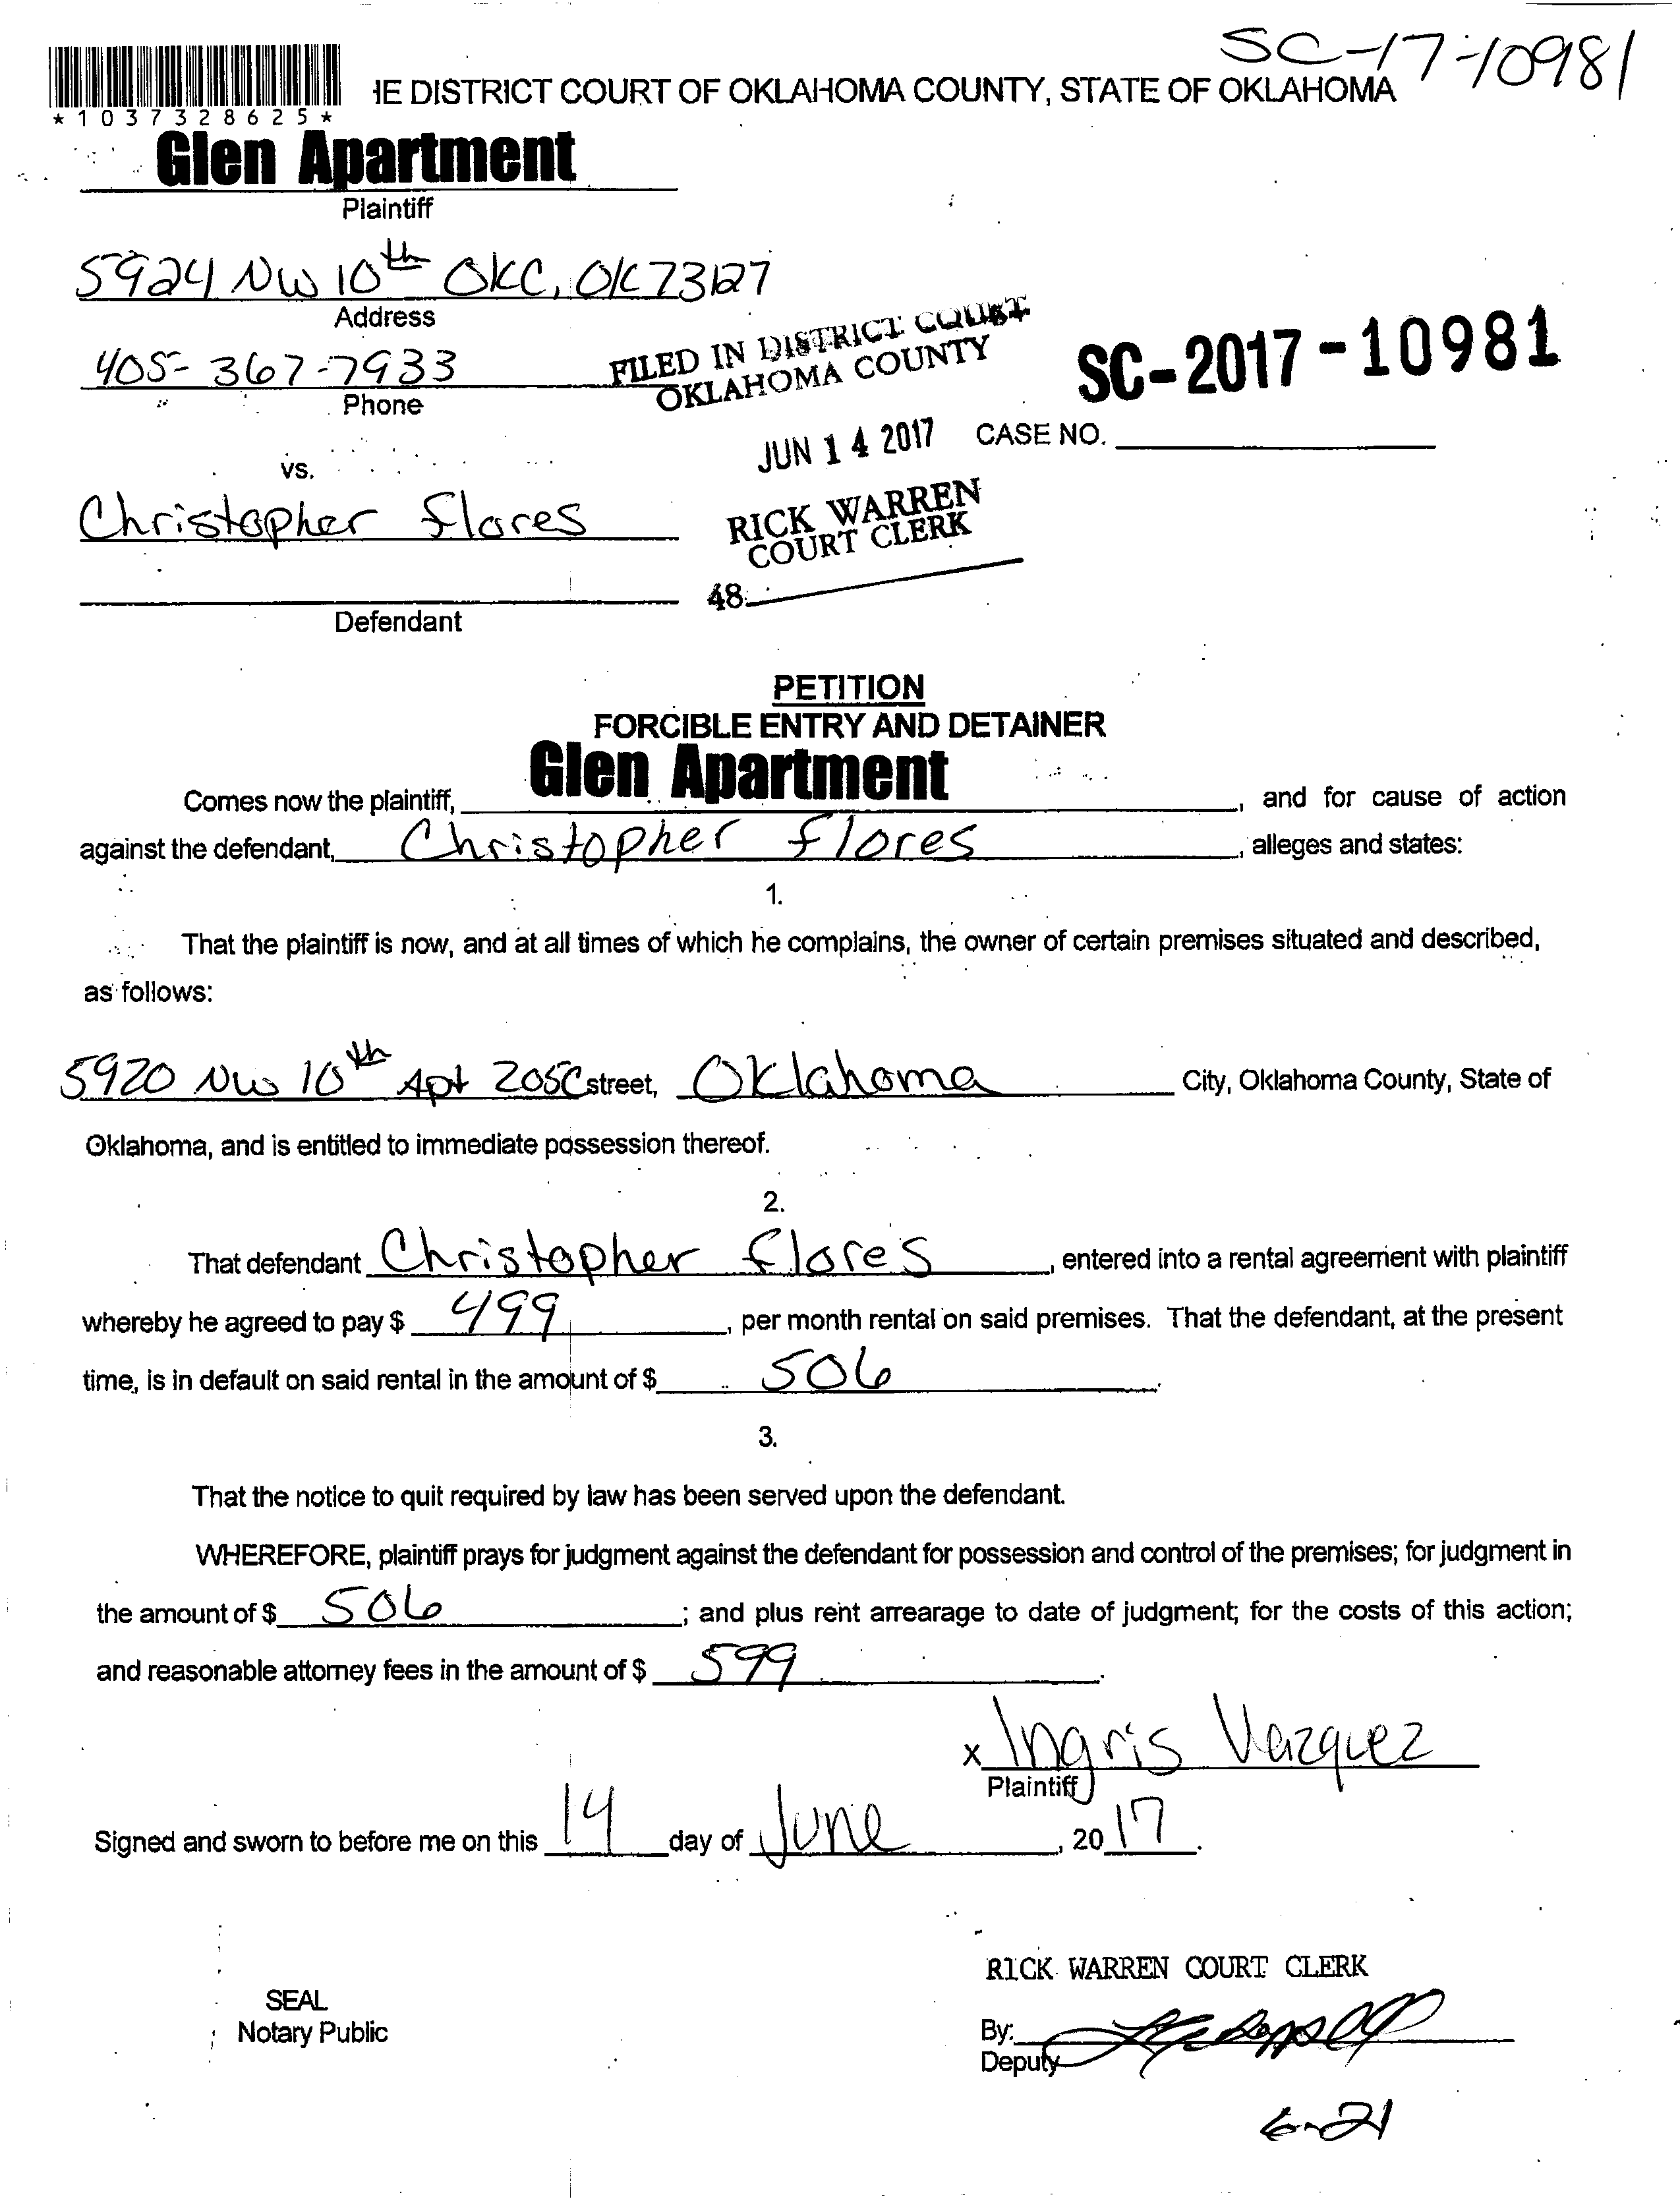 SC-17-10981
HE DISTRICT COURT OF OKLAHOMA COUNTY, STATE OF OKLAHOMA
*1037328625*
Glen Apartment
Plaintiff
5924 NW 10th OKC, OK 73127
Address
405-367-7933
Phone
FILED IN DISTRICT COURT
OKLAHOMA COUNTY
SC-2017-10981
JUN 14 2017
CASE NO.
vs.
Christopher Flores
RICK WARREN
COURT CLERK
48
Defendant
PETITION
FORCIBLE ENTRY AND DETAINER
Comes now the plaintiff, Glen Apartment, and for cause of action
against the defendant, Christopher Flores, alleges and states:
1.
That the plaintiff is now, and at all times of which he complains, the owner of certain premises situated and described,
as follows:
5920 NW 10th Apt 205C street, Oklahoma City, Oklahoma County, State of
Oklahoma, and is entitled to immediate possession thereof.
2.
That defendant Christopher Flores, entered into a rental agreement with plaintiff
whereby he agreed to pay $ 499, per month rental on said premises. That the defendant, at the present
time, is in default on said rental in the amount of $ 506.
3.
That the notice to quit required by law has been served upon the defendant.
WHEREFORE, plaintiff prays for judgment against the defendant for possession and control of the premises; for judgment in
the amount of $ 506; and plus rent arrearage to date of judgment; for the costs of this action;
and reasonable attorney fees in the amount of $ 599.
x Ingris Vazquez
Plaintiff
Signed and sworn to before me on this 14 day of June, 2017.
RICK WARREN COURT CLERK
SEAL
Notary Public
By:
Deputy
6-21